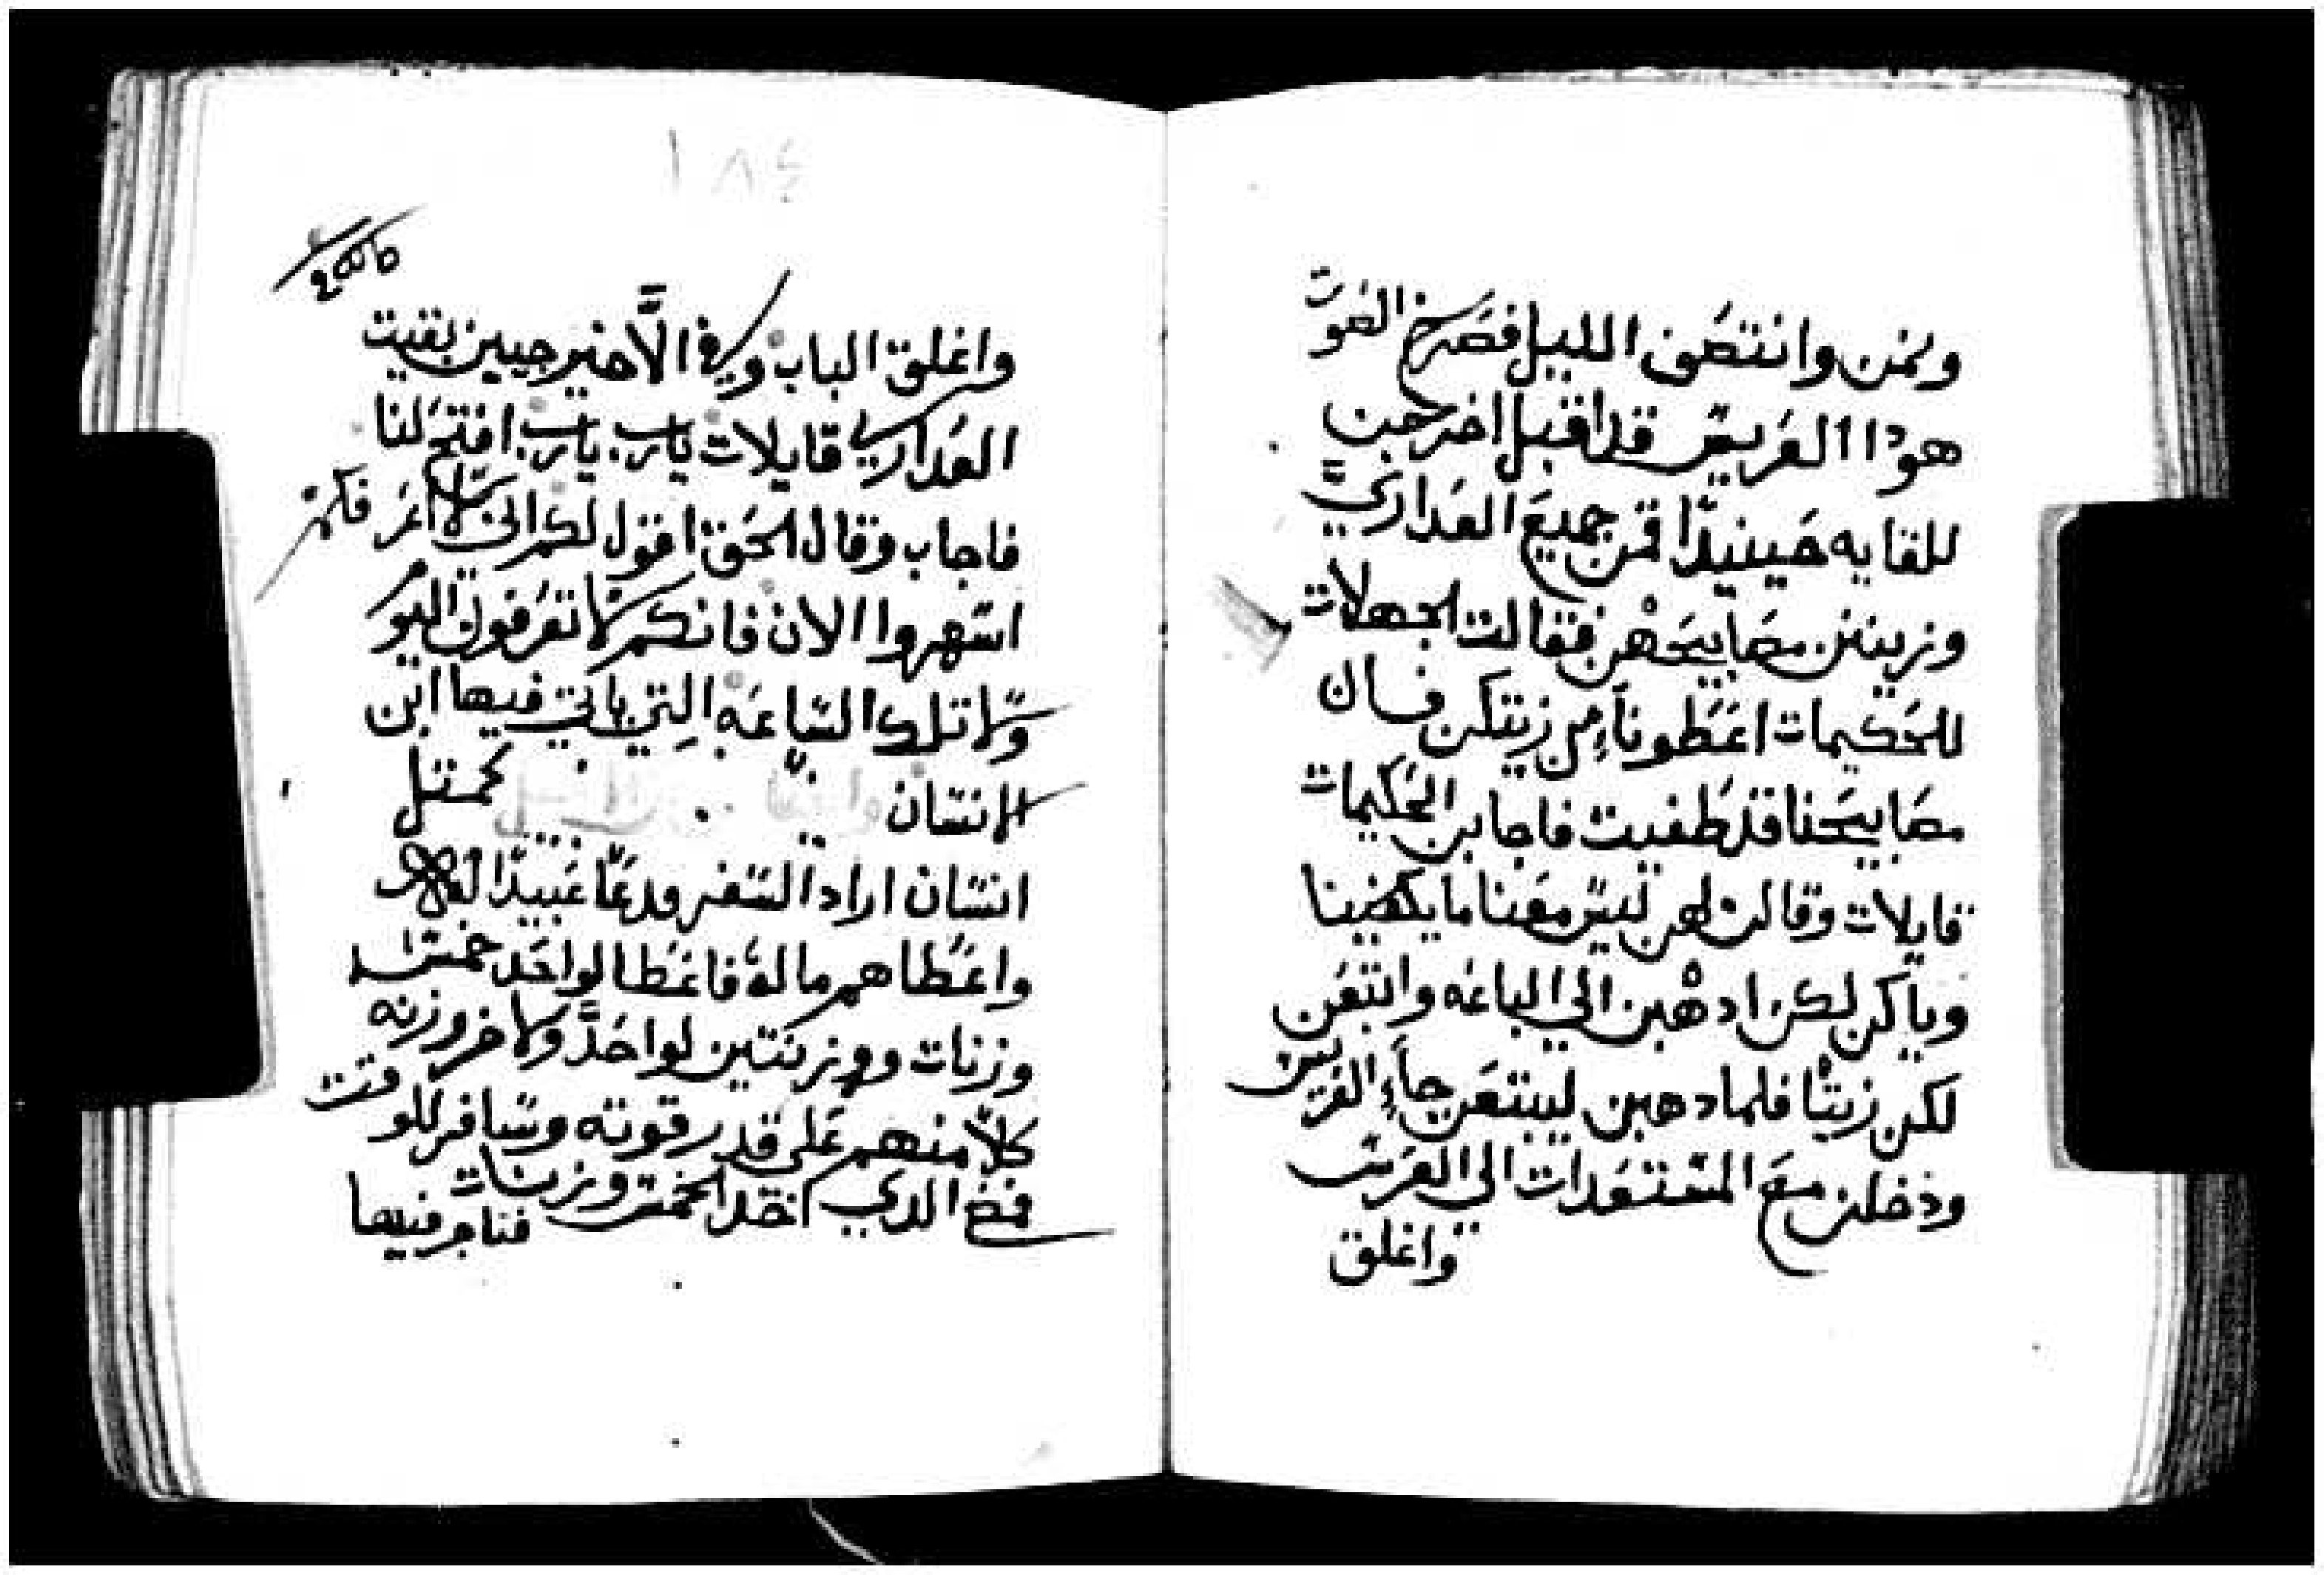 ونمن وانتصف الليل فصرخ الصوت
هودا العريس قد اقبل اخرجن
للقايه حينيدا قمن جميع العداري
وزينن مصابيحهن فقالت الجهلات
للحكيمات اعطونا من زيتكن فان
مصابيحنا قد طفيت فاجابن الحكيمات
قايلات وقالت لهن ليس معنا ما يكفينا
وياكن لكن ادهبن الي الباعه وابتعن
لكن زيتا فلما دهبن ليبتعن جاء العريس
ودخلن مع المستعدات الي العرس
واغلق
١٨٤
واغلق الباب وفي الاخير جيين بقيت
العداري قايلات يارب يارب افتح لنا
فاجاب وقال الحق اقول لكم اني لا اعرفكم
اسهروا الان فانكم لا تعرفون اليوم
ولا تلك الساعه التي ياتي فيها ابن
الانسان كمتل
انسان اراد السفر فدعا عبيده
واعطاهم ماله فاعطا لواحد خمس
وزنات ووزنتين لواحد ولاخر وزنه
كلا منهم علي قدر قوته وسافر للوقت
فمضي الدي اخد الخمس وزنات
فتاجر فيها